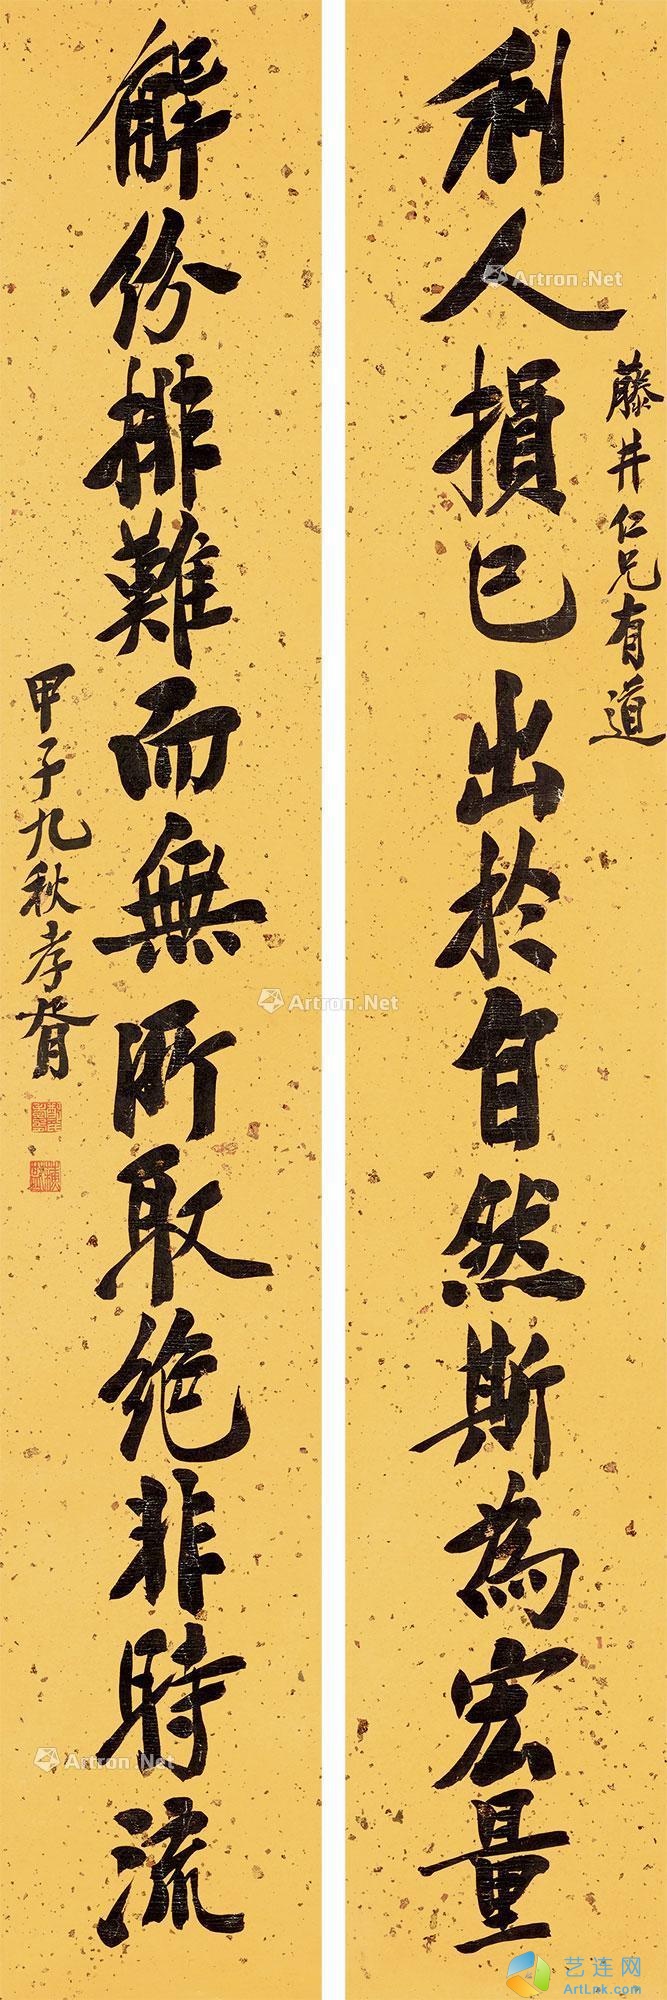 藤井仁兄有道
利人損己出於自然斯為宏量
解紛排難而無所取絶非時流
甲子九秋孝胥
Artron.Net
Artron.Net
Artron.Net
艺连网
ArtLnk.com